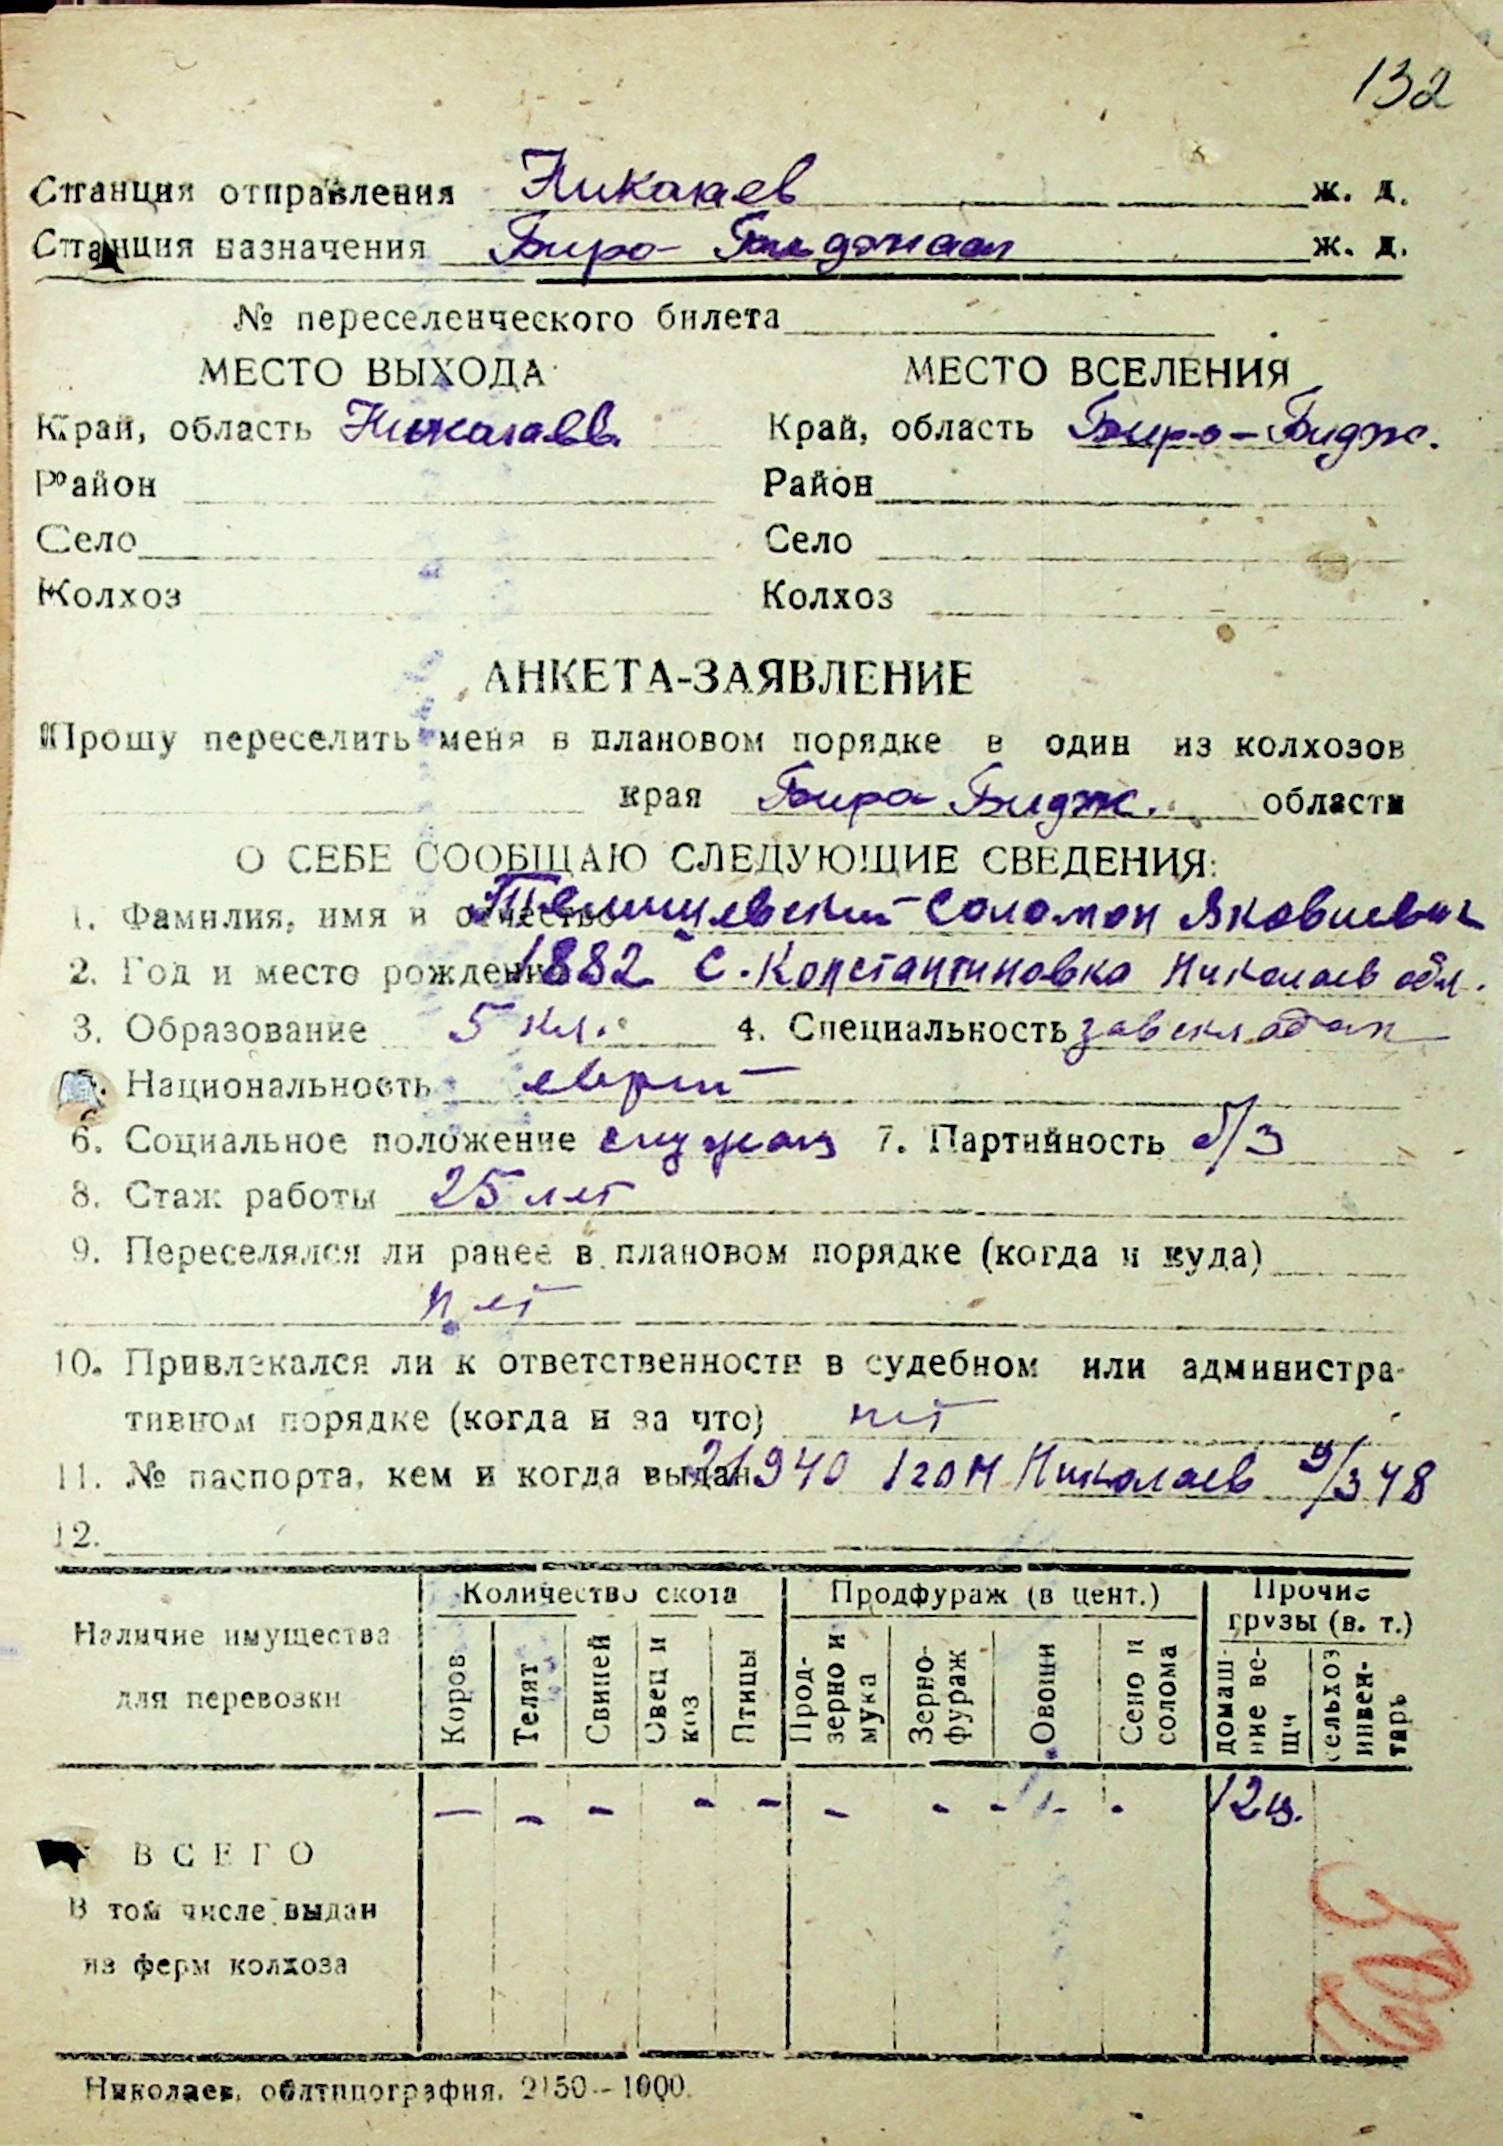 132
Станция отправления Николаев ж. д.
Станция назначения Биро-Биджан ж. д.
№ переселенческого билета
МЕСТО ВЫХОДА МЕСТО ВСЕЛЕНИЯ
Край, область Николаев Край, область Биро-Бидж.
Район Район
Село Село
Колхоз Колхоз
АНКЕТА-ЗАЯВЛЕНИЕ
Прошу переселить меня в плановом порядке в один из колхозов
края Биро-Бидж. области
О СЕБЕ СООБЩАЮ СЛЕДУЮЩИЕ СВЕДЕНИЯ:
1. Фамилия, имя и отчество Соломон Яковлевич
2. Год и место рождения 1882 с. Константиновка Николаев обл.
3. Образование 5 кл. 4. Специальность завскладом
5. Национальность еврей
6. Социальное положение служащ 7. Партийность
8. Стаж работы 25 лет
9. Переселялся ли ранее в плановом порядке (когда и куда)
нет
10. Привлекался ли к ответственности в судебном или администра-
тивном порядке (когда и за что) нет
11. № паспорта, кем и когда выдан 1 гом Николаев 9/3 48
12.
Наличие имущества для перевозки
Количество скота Продфураж (в цент.) Прочие грузы (в. т.)
Коров Телят Свиней Овец и коз Птицы Прод-зерно и мука Зерно-фураж Овощи Сено и солома домаш-ние ве-щи сельхоз инвен-тарь
— - - - - - - - - - 12ц.
ВСЕГО
В том числе выдан
из ферм колхоза
Николаев, облтипография. 2150—1000.